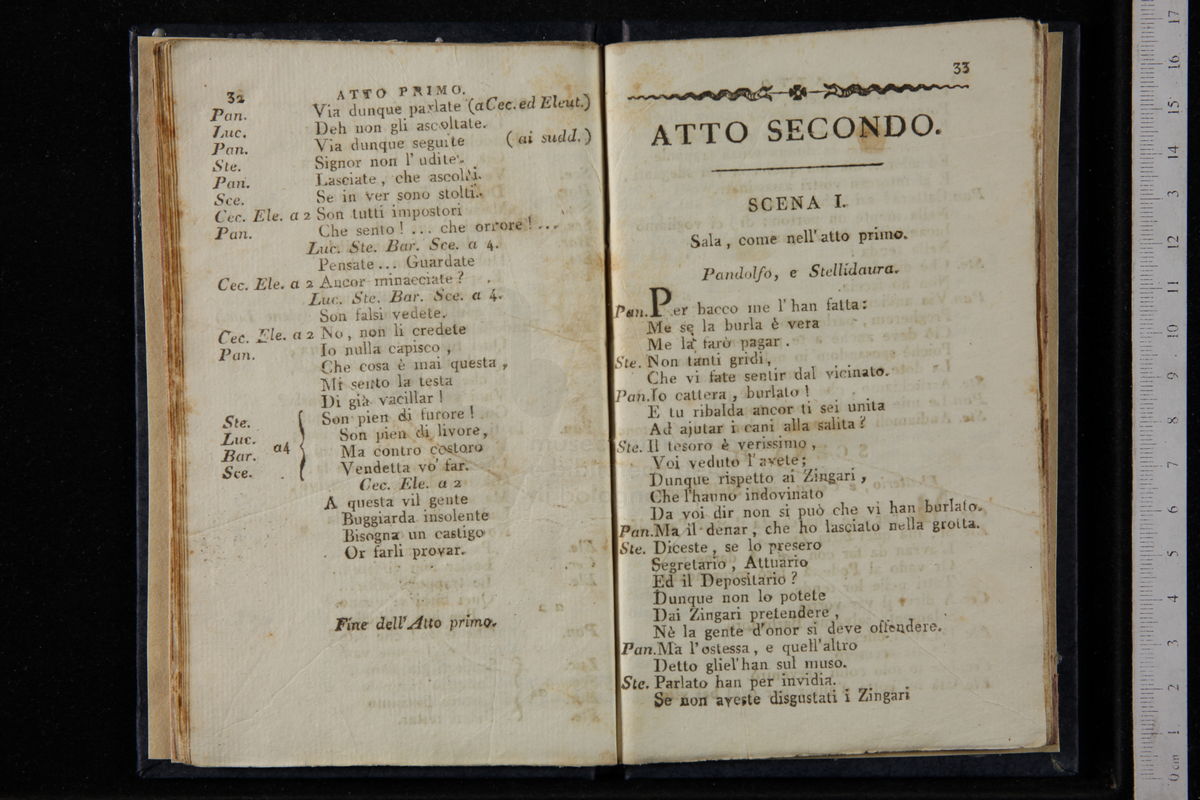 32 ATTO PRIMO.
Pan. Via dunque parlate (a Cec. ed Eleut.)
Luc. Deh non gli ascoltate.
Pan. Via dunque seguite (ai sudd.)
Ste. Signor non l'udite.
Pan. Lasciate, che ascolti.
Sce. Se in ver sono stolti.
Cec. Ele. a 2 Son tutti impostori
Pan. Che sento! ... che orrore! ...
Luc. Ste. Bar. Sce. a 4.
Pensate... Guardate
Cec. Ele. a 2 Ancor minacciate?
Luc. Ste. Bar. Sce. a 4.
Son falsi vedete.
Cec. Ele. a 2 No, non li credete
Pan. Io nulla capisco,
Che cosa è mai questa,
Mi sento la testa
Di già vacillar!
Ste. Son pien di furore!
Luc. Son pien di livore,
Bar. a4 Ma contro costoro
Sce. Vendetta vo' far.
Cec. Ele. a 2
A questa vil gente
Buggiarda insolente
Bisogna un castigo
Or farli provar.
Fine dell'Atto primo.
33
ATTO SECONDO.
SCENA I.
Sala, come nell'atto primo.
Pandolfo, e Stellidaura.
Pan. Per bacco me l'han fatta:
Me se la burla è vera
Me la farò pagar.
Ste. Non tanti gridi,
Che vi fate sentir dal vicinato.
Pan. Io cattera, burlato!
E tu ribalda ancor ti sei unita
Ad ajutar i cani alla salita?
Ste. Il tesoro è verissimo,
Voi veduto l'avete;
Dunque rispetto ai Zingari,
Che l'hanno indovinato
Da voi dir non si può che vi han burlato.
Pan. Ma il denar, che ho lasciato nella grotta.
Ste. Diceste, se lo presero
Segretario, Attuario
Ed il Depositario?
Dunque non lo potete
Dai Zingari pretendere,
Nè la gente d'onor si deve offendere.
Pan. Ma l'ostessa, e quell'altro
Detto gliel'han sul muso.
Ste. Parlato han per invidia.
Se non aveste disgustati i Zingari
17
16
15
14
13
12
11
10
9
8
7
6
5
4
3
2
1
0 cm